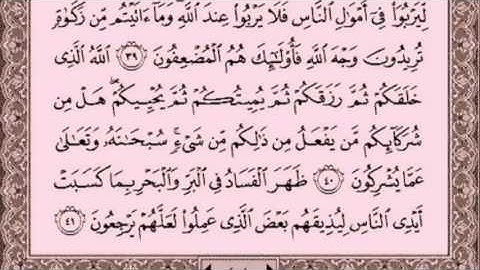 لِّيَرْبُوَا۟ فِىٓ أَمْوَٰلِ ٱلنَّاسِ فَلَا يَرْبُوا۟ عِندَ ٱللَّهِ وَمَآ ءَاتَيْتُم مِّن زَكَوٰةٍ
تُرِيدُونَ وَجْهَ ٱللَّهِ فَأُو۟لَٰٓئِكَ هُمُ ٱلْمُضْعِفُونَ ٣٩ ٱللَّهُ ٱلَّذِى
خَلَقَكُمْ ثُمَّ رَزَقَكُمْ ثُمَّ يُمِيتُكُمْ ثُمَّ يُحْيِيكُمْ ۖ هَلْ مِن
شُرَكَآئِكُم مَّن يَفْعَلُ مِن ذَٰلِكُم مِّن شَىْءٍ ۚ سُبْحَٰنَهُۥ وَتَعَٰلَىٰ
عَمَّا يُشْرِكُونَ ٤٠ ظَهَرَ ٱلْفَسَادُ فِى ٱلْبَرِّ وَٱلْبَحْرِ بِمَا كَسَبَتْ
أَيْدِى ٱلنَّاسِ لِيُذِيقَهُم بَعْضَ ٱلَّذِى عَمِلُوا۟ لَعَلَّهُمْ يَرْجِعُونَ ٤١